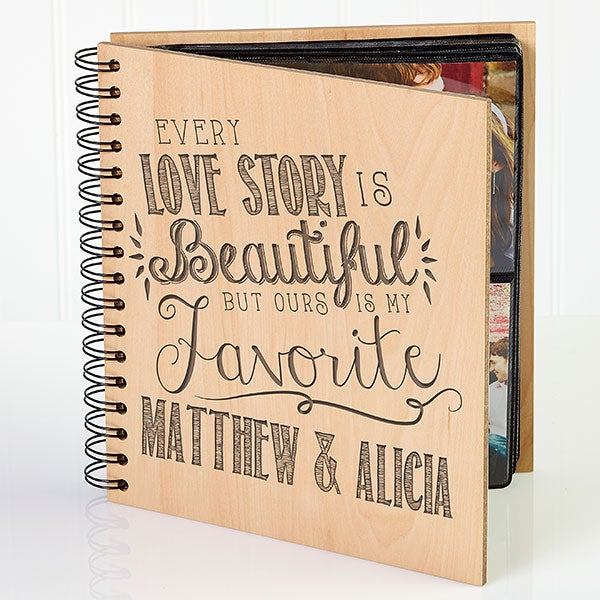 EVERY
LOVE STORY IS
Beautiful
BUT OURS IS MY
Favorite
MATTHEW & ALICIA